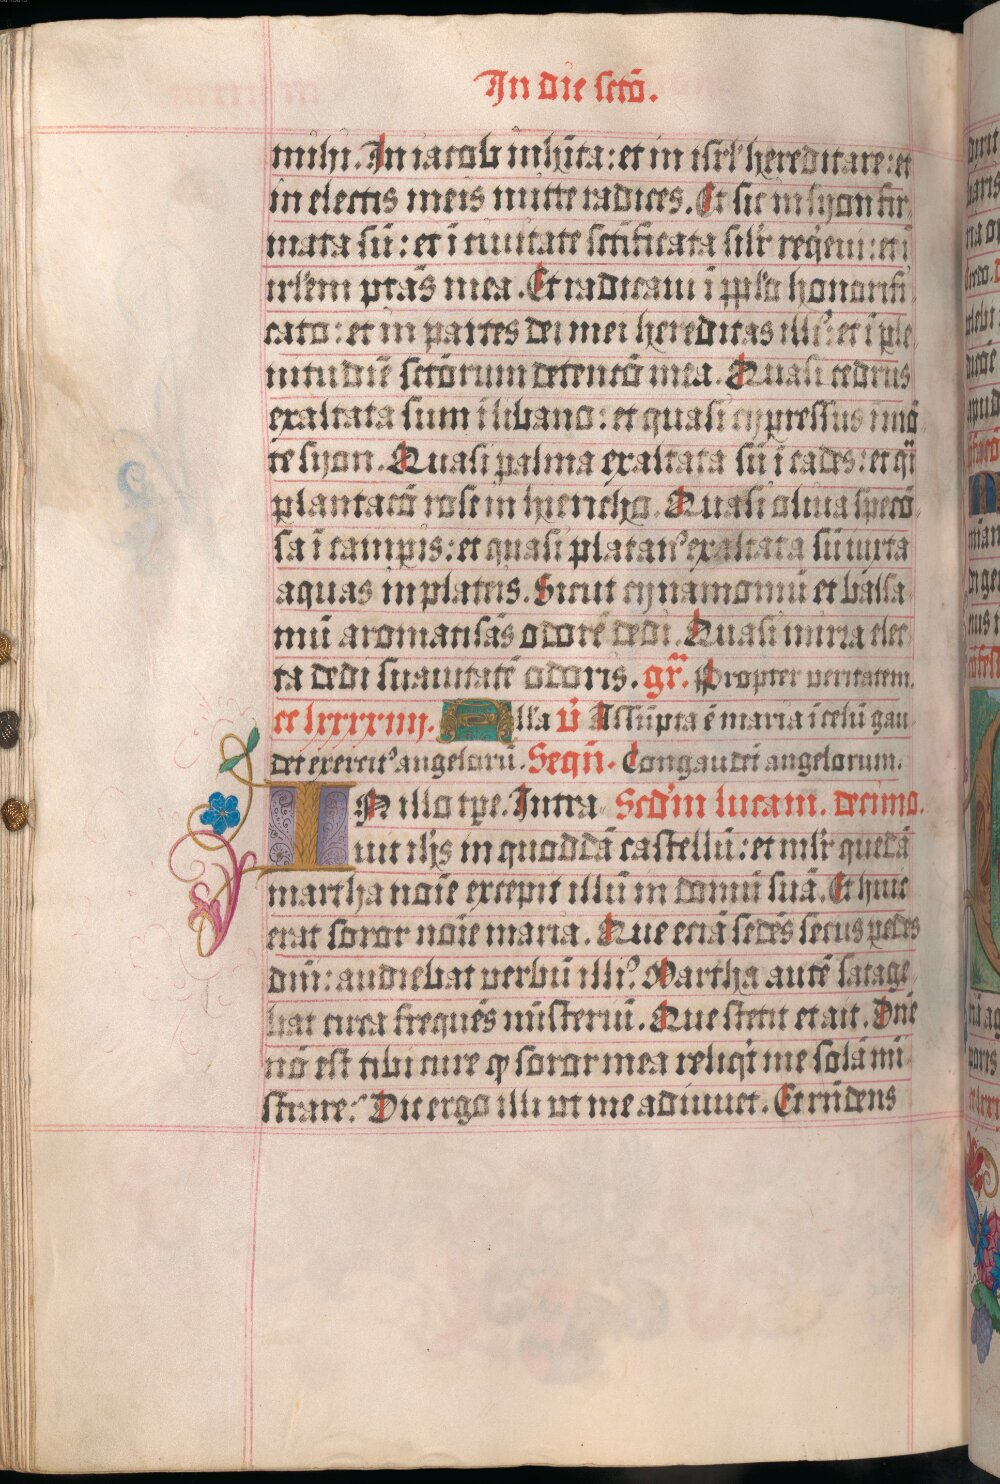 In die sctō.
mihi. In iacob inhīta: et in isrl' hereditare: et
in electis meis mitte radices. Et sic in syon fir
mata sū: et ī ciuitate scīficata silr̄ reqeui: et ī
irlem ptās mea. Et radicaui ī pplo honorifi
cato: et in partes dei mei hereditas illi9: et ī ple
nitudīe sctōrum detentō mea. Quasi cedrus
exaltata sum ī libano: et quasi cypressus ī mō
te syon. Quasi palma exaltata sū ī cades: et qī
plantacō rose in hiericho. Quasi oliua specō
sa ī campis: et quasi platan9 exaltata sū iuxta
aquas in plateis. Sicut cynamomū et balsa
mū aromatisās odorē dedi. Quasi mirra elec
ta dedi suauitatē odoris. gr̄. Propter veritatem.
cc lxxxxiiij. Alla v̄ Assūpta ē maria ī celū gau
det exercit9 angelorū. Seqn̄. Congaudēt angelorum.
IN illo tpe. Intra Scdm lucam. decimo.
uit ihs in quoddā castellū: et mlr̄ quedā
martha noīe excepit illū in domū suā. Et huic
erat soror noīe maria. Que eciā sedēs secus pedes
dnī: audiebat verbū illi9. Martha autē satage
bat circa frequēs misteriū. Que stetit et ait. Dnē
nō est tibi cure qp soror mea reliqt me solā mi
strare? Dic ergo illi ut me adiuuet. Et rn̄dens